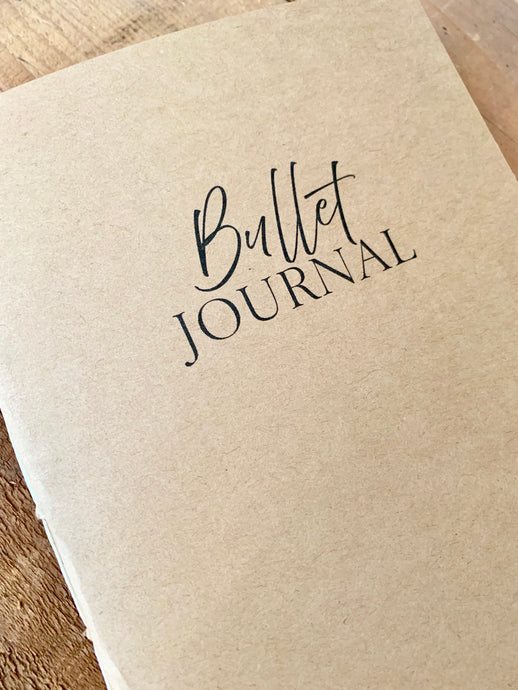 Bullet
JOURNAL